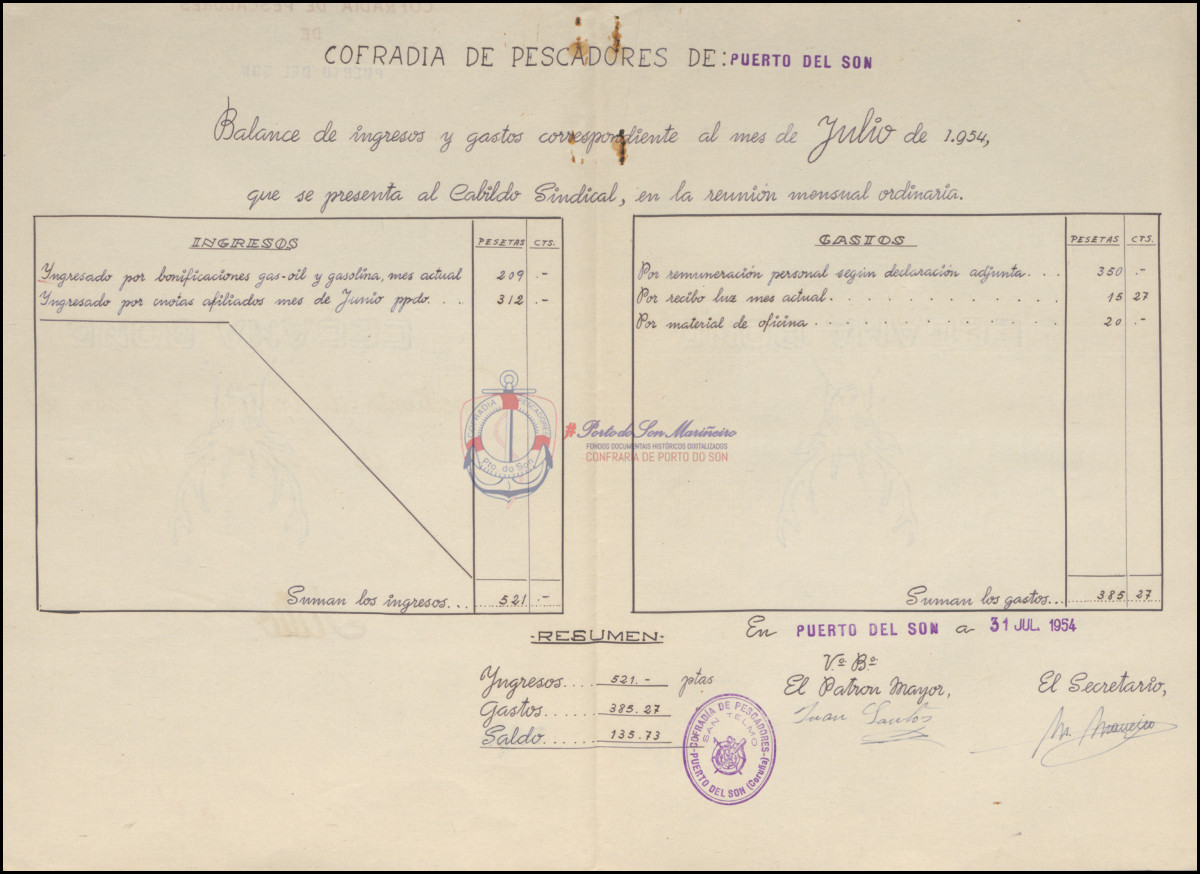 COFRADIA DE PESCADORES DE: PUERTO DEL SON
Balance de ingresos y gastos correspondiente al mes de Julio de 1.954,
que se presenta al Cabildo Sindical, en la reunión mensual ordinaria.
INGRESOS PESETAS CTS.
Ingresado por bonificaciones gas-oil y gasolina, mes actual 209 .-
Ingresado por cuotas afiliados mes de Junio ppdo. . . 312 .-
Suman los ingresos... 521 .-
GASTOS PESETAS CTS.
Por remuneración personal según declaración adjunta. . . 350 .-
Por recibo luz mes actual. . . . . . . . . . 15 27
Por material de oficina . . . . . . . . . . . 20 .-
Suman los gastos... 385 27
COFRADIA PESCADORES
Pto. do Son
#Porto do Son Mariñeiro
FONDOS DOCUMENTAIS HISTÓRICOS DIGITALIZADOS
CONFRARÍA DE PORTO DO SON
-RESUMEN-
Ingresos.... 521.- ptas
Gastos...... 385.27
Saldo...... 135.73
En PUERTO DEL SON a 31 JUL. 1954
Vº Bº
El Patron Mayor,
Juan Santos
El Secretario,
COFRADIA DE PESCADORES
SAN TELMO
PUERTO DEL SON (Coruña)